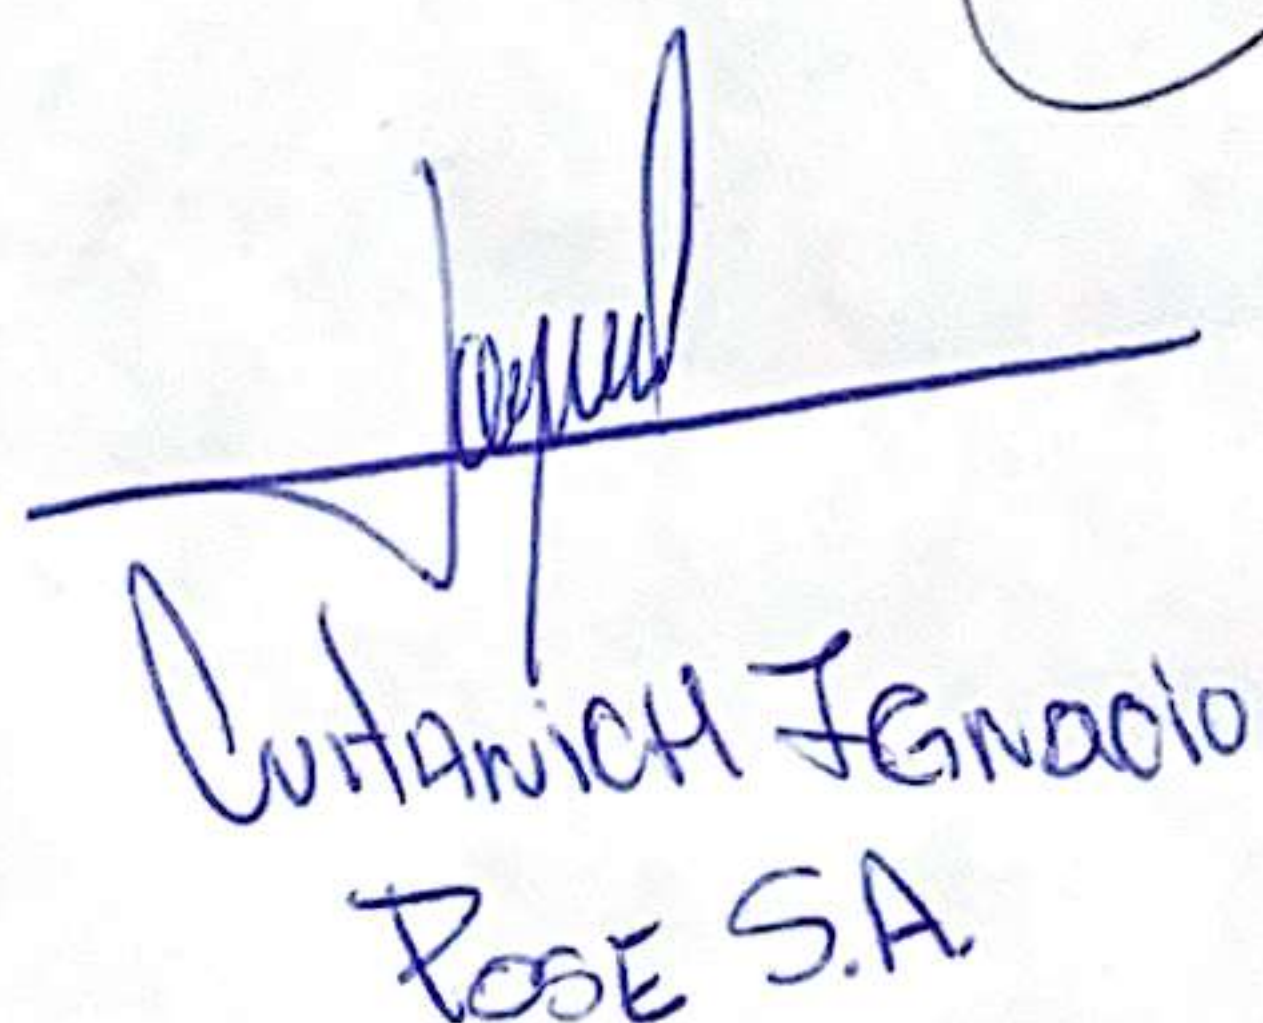 CUITANICH IGNACIO
POSE S.A.